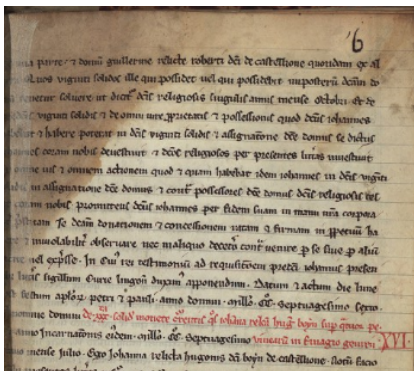 6
una parte · ⁊ domū guillerme relicte roberti dc̄i de castellione quondam ex al
quos viginti solidos ille qui possidet uel qui possidebit inposterū dc̄am do
tenetur soluere ut dictū dc̄is religiosis singulis annis mense octobri · et de
dc̄is viginti solidis ⁊ de omni iure proprietatis ⁊ possessionis quod dc̄us iohannes
habebat ⁊ habere poterat in dc̄is viginti solidis ⁊ assignatione dc̄e domus se dictus
iohannes coram nobis deuestiuit · ⁊ dc̄os religiosos per presentes litteras inuestiuit
omne ius ⁊ omnem actionem quod ⁊ quam habebat idem iohannes in dc̄is viginti
in assignatione dc̄e domus ⁊ contra possessores dc̄e domus dc̄is religiosis
coram nobis promittens dc̄us iohannes per fidem suam in manu nr̄a corpora
prestitam se dc̄am donationem ⁊ concessionem ratam ⁊ firmam in perpetuū ha
⁊ inuiolabiliter obseruare nec in aliquo de cetero contra uenire per se siue per aliū
uel expresse · In cuius rei testimoniū ad requisitionem predicti iohannis presen
litteris sigillum Curie lingon duximus apponendum · Datum ⁊ actum die lune
festum apostolorum petri ⁊ pauli · anno domini · millo · CC · Septuagesimo sexto ·
nomine domini de · xx · solid monete iohana relicta hug
anno incarnationis eiusdem · millo · CC · Septuagesimo XVI ·
mense Julio · Ego Johanna relicta hugonis dc̄i de castellione · Notū facio